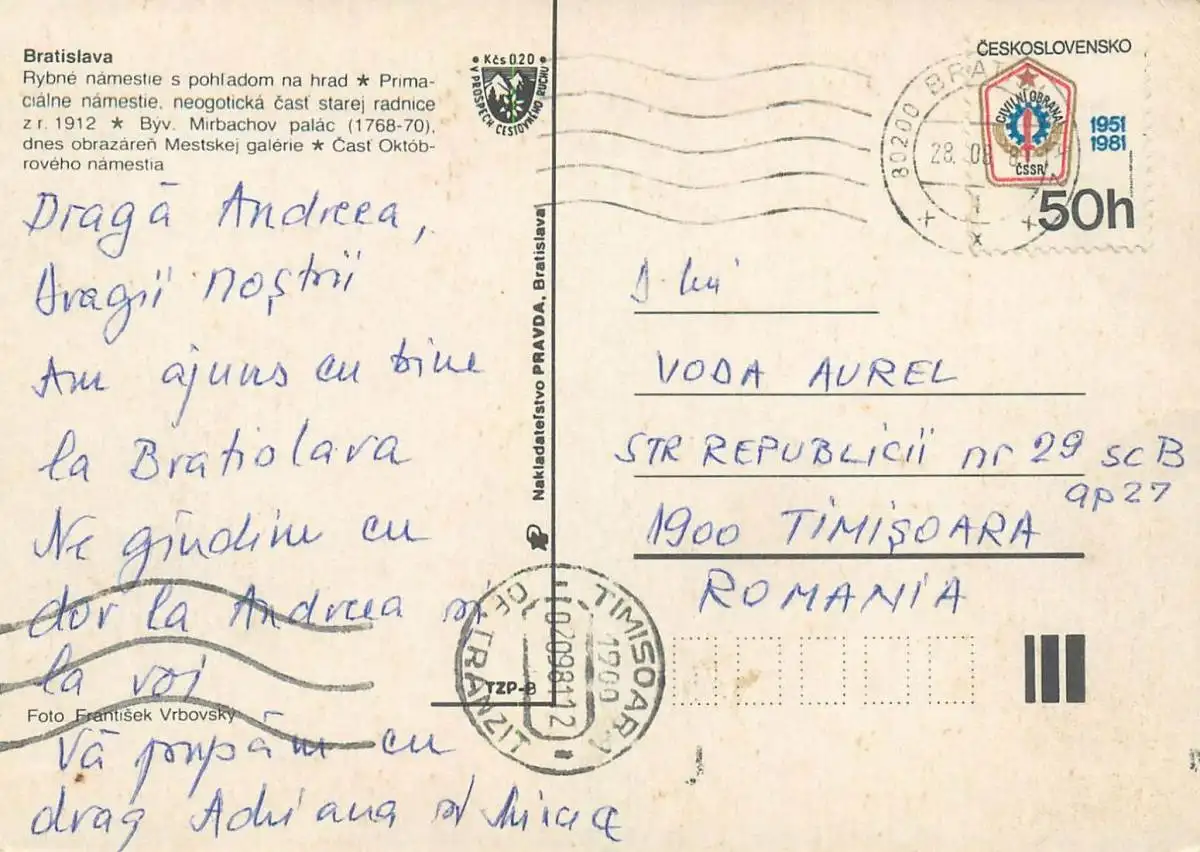 Bratislava
Rybné námestie s pohľadom na hrad ★ Prima-
ciálne námestie, neogotická časť starej radnice
z r. 1912 ★ Býv. Mirbachov palác (1768-70),
dnes obrazáreň Mestskej galérie ★ Časť Októb-
rového námestia
Kčs 0.20
V PROSPECH CESTOVNÉHO RUCHU
Dragă Andreea,
dragii noștrii
Am ajuns cu bine
la Bratislava
Ne gîndim cu
dor la Andreea și
la voi
Foto František Vrbovský
Vă pupăm cu
drag Adriana și
Nakladateľstvo PRAVDA, Bratislava
TZP-B
ČESKOSLOVENSKO
CIVILNÍ OBRANA
ČSSR
1951
1981
50h
80200 BRAT
28. 08
D-lui
VODA AUREL
STR REPUBLICII nr 29 sc B
ap 27
1900 TIMIȘOARA
ROMANIA
TIMISOARA
1900
020981 12
OF. TRANZIT